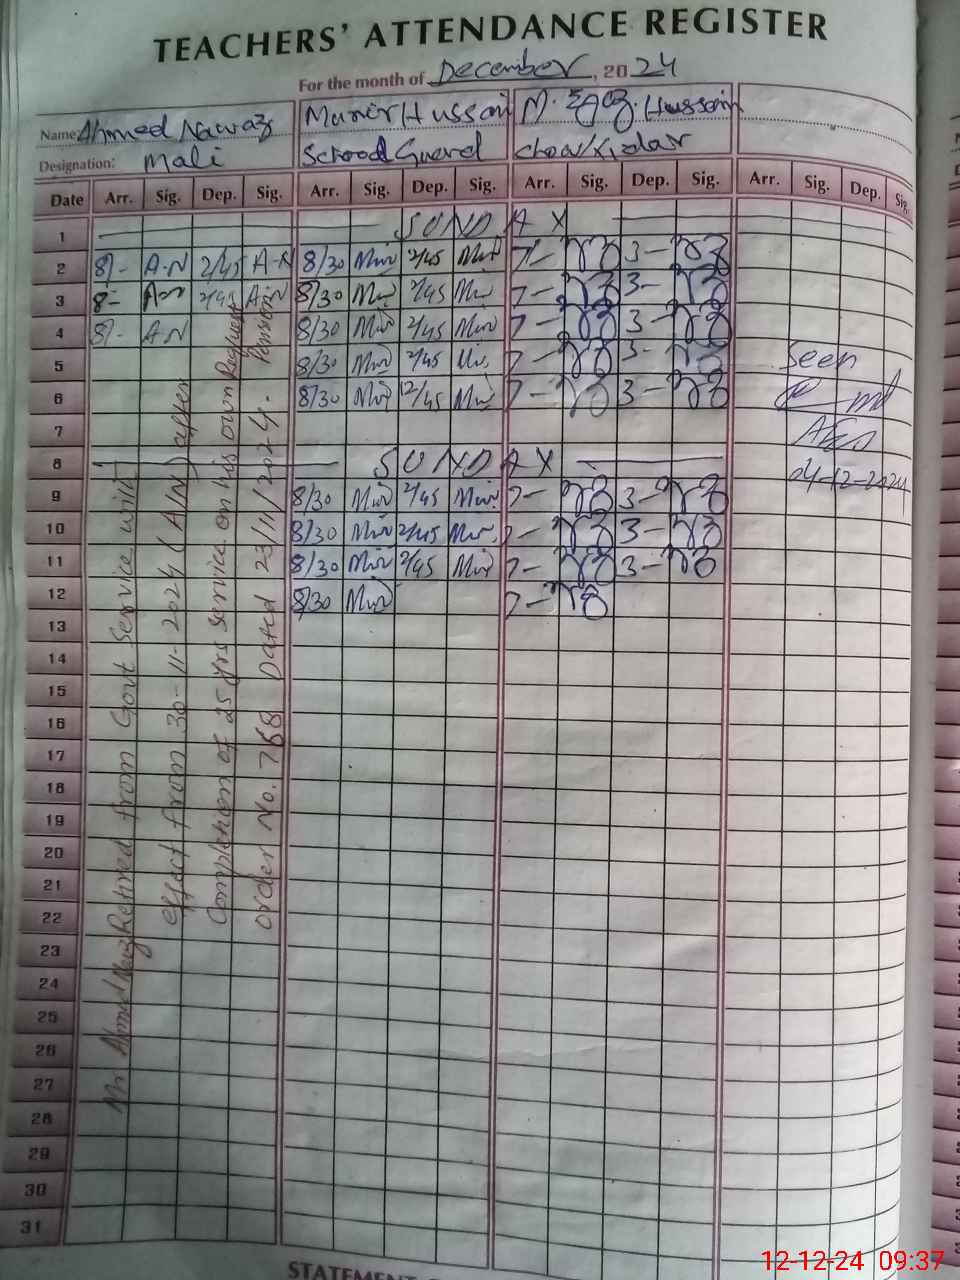 TEACHERS' ATTENDANCE REGISTER
For the month of December, 2024
Name: Ahmed Nawaz Munir Hussain M. Ejaz Hussain
Designation: Mali School Guard Chowkidar
Date Arr. Sig. Dep. Sig. Arr. Sig. Dep. Sig. Arr. Sig. Dep. Sig. Arr. Sig. Dep. Sig.
1 SUNDAY
2 8/- A-N 2/45 A-N 8/30 2/45 7- 3-
3 8- 2/45 8/30 2/45 7- 3-
4 8/- AN 8/30 2/45 7- 3-
5 8/30 2/45 7- 3- Seen
6 8/30 2/45 7- 3-
7
8 SUNDAY
04-12-2024
9 8/30 2/45 7- 3-
10 8/30 2/45 7- 3-
11 8/30 2/45 7- 3-
12 8/30 7-
13
14
15
16
17
18
19
20
21
22
23
24
25
26
27
28
29
30
31
Mr Ahmed Nawaz Retired from Govt Service with
effect from 30-11-2024 (A/N) after
Completion of 25 yrs service on his own Request
order No. 768 Dated 23/11/2024.
STATEMENT
12-12-24 09:37